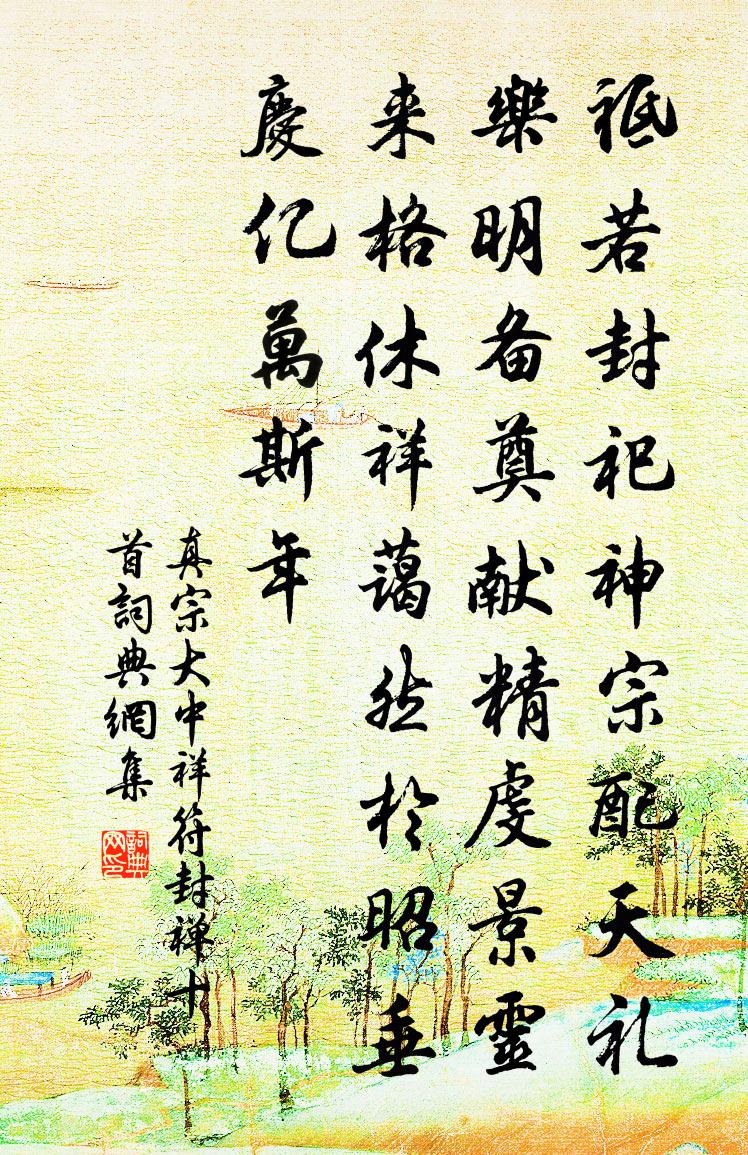 祗若封祀神宗配天礼
樂明备奠献精虔景靈
来格休祥藹然於昭垂
慶亿萬斯年
真宗大中祥符封禅十
首詞典網集
詞典网印